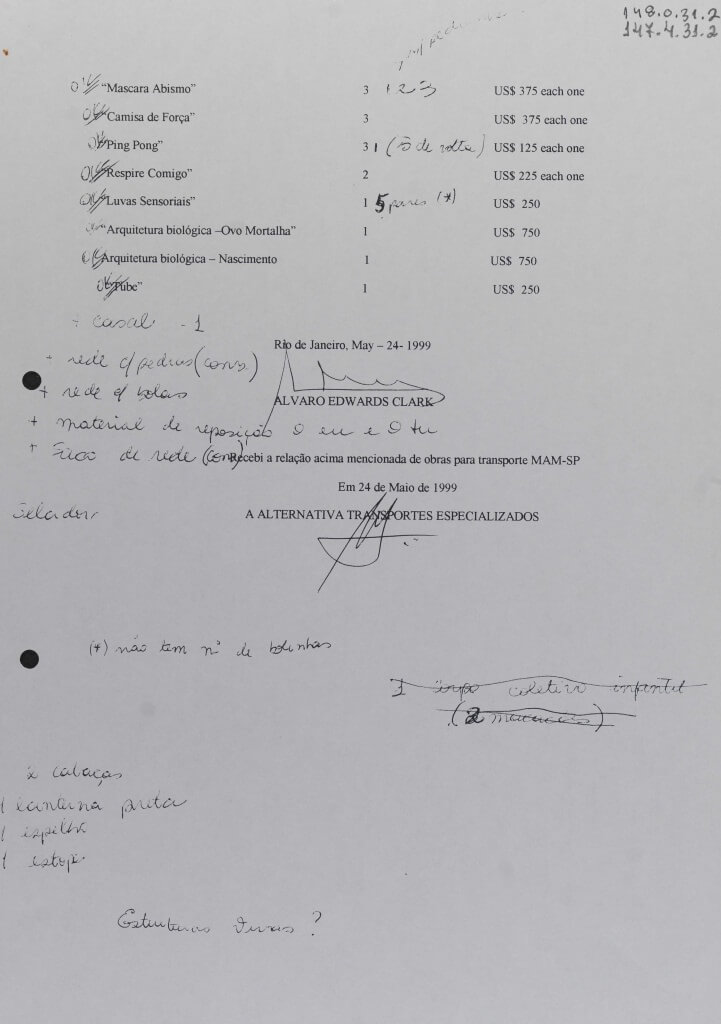 148.0.31.2
147.4.31.2
ok "Mascara Abismo" 3 1 2 3 US$ 375 each one
ok "Camisa de Força" 3 US$ 375 each one
ok "Ping Pong" 3 1 (5 de volta) US$ 125 each one
ok "Respire Comigo" 2 US$ 225 each one
ok "Luvas Sensoriais" 1 5 pares (*) US$ 250
"Arquitetura biológica –Ovo Mortalha" 1 US$ 750
ok Arquitetura biológica – Nascimento 1 US$ 750
ok "Tube" 1 US$ 250
+ casal - 1
Rio de Janeiro, May – 24- 1999
+ rede c/ pedras (cons.)
+ rede c/ bolas
ALVARO EDWARDS CLARK
+ material de reposição O eu e O tu
+ Saco de rede (cons)
Recebi a relação acima mencionada de obras para transporte MAM-SP
Em 24 de Maio de 1999
Zelador
A ALTERNATIVA TRANSPORTES ESPECIALIZADOS
(*) não tem nº de bolinhas
1 corpo coletivo infantil
(2 macacões)
2 cabaças
1 lanterna preta
1 espelho
1 estopa
Estruturas Vivas ?